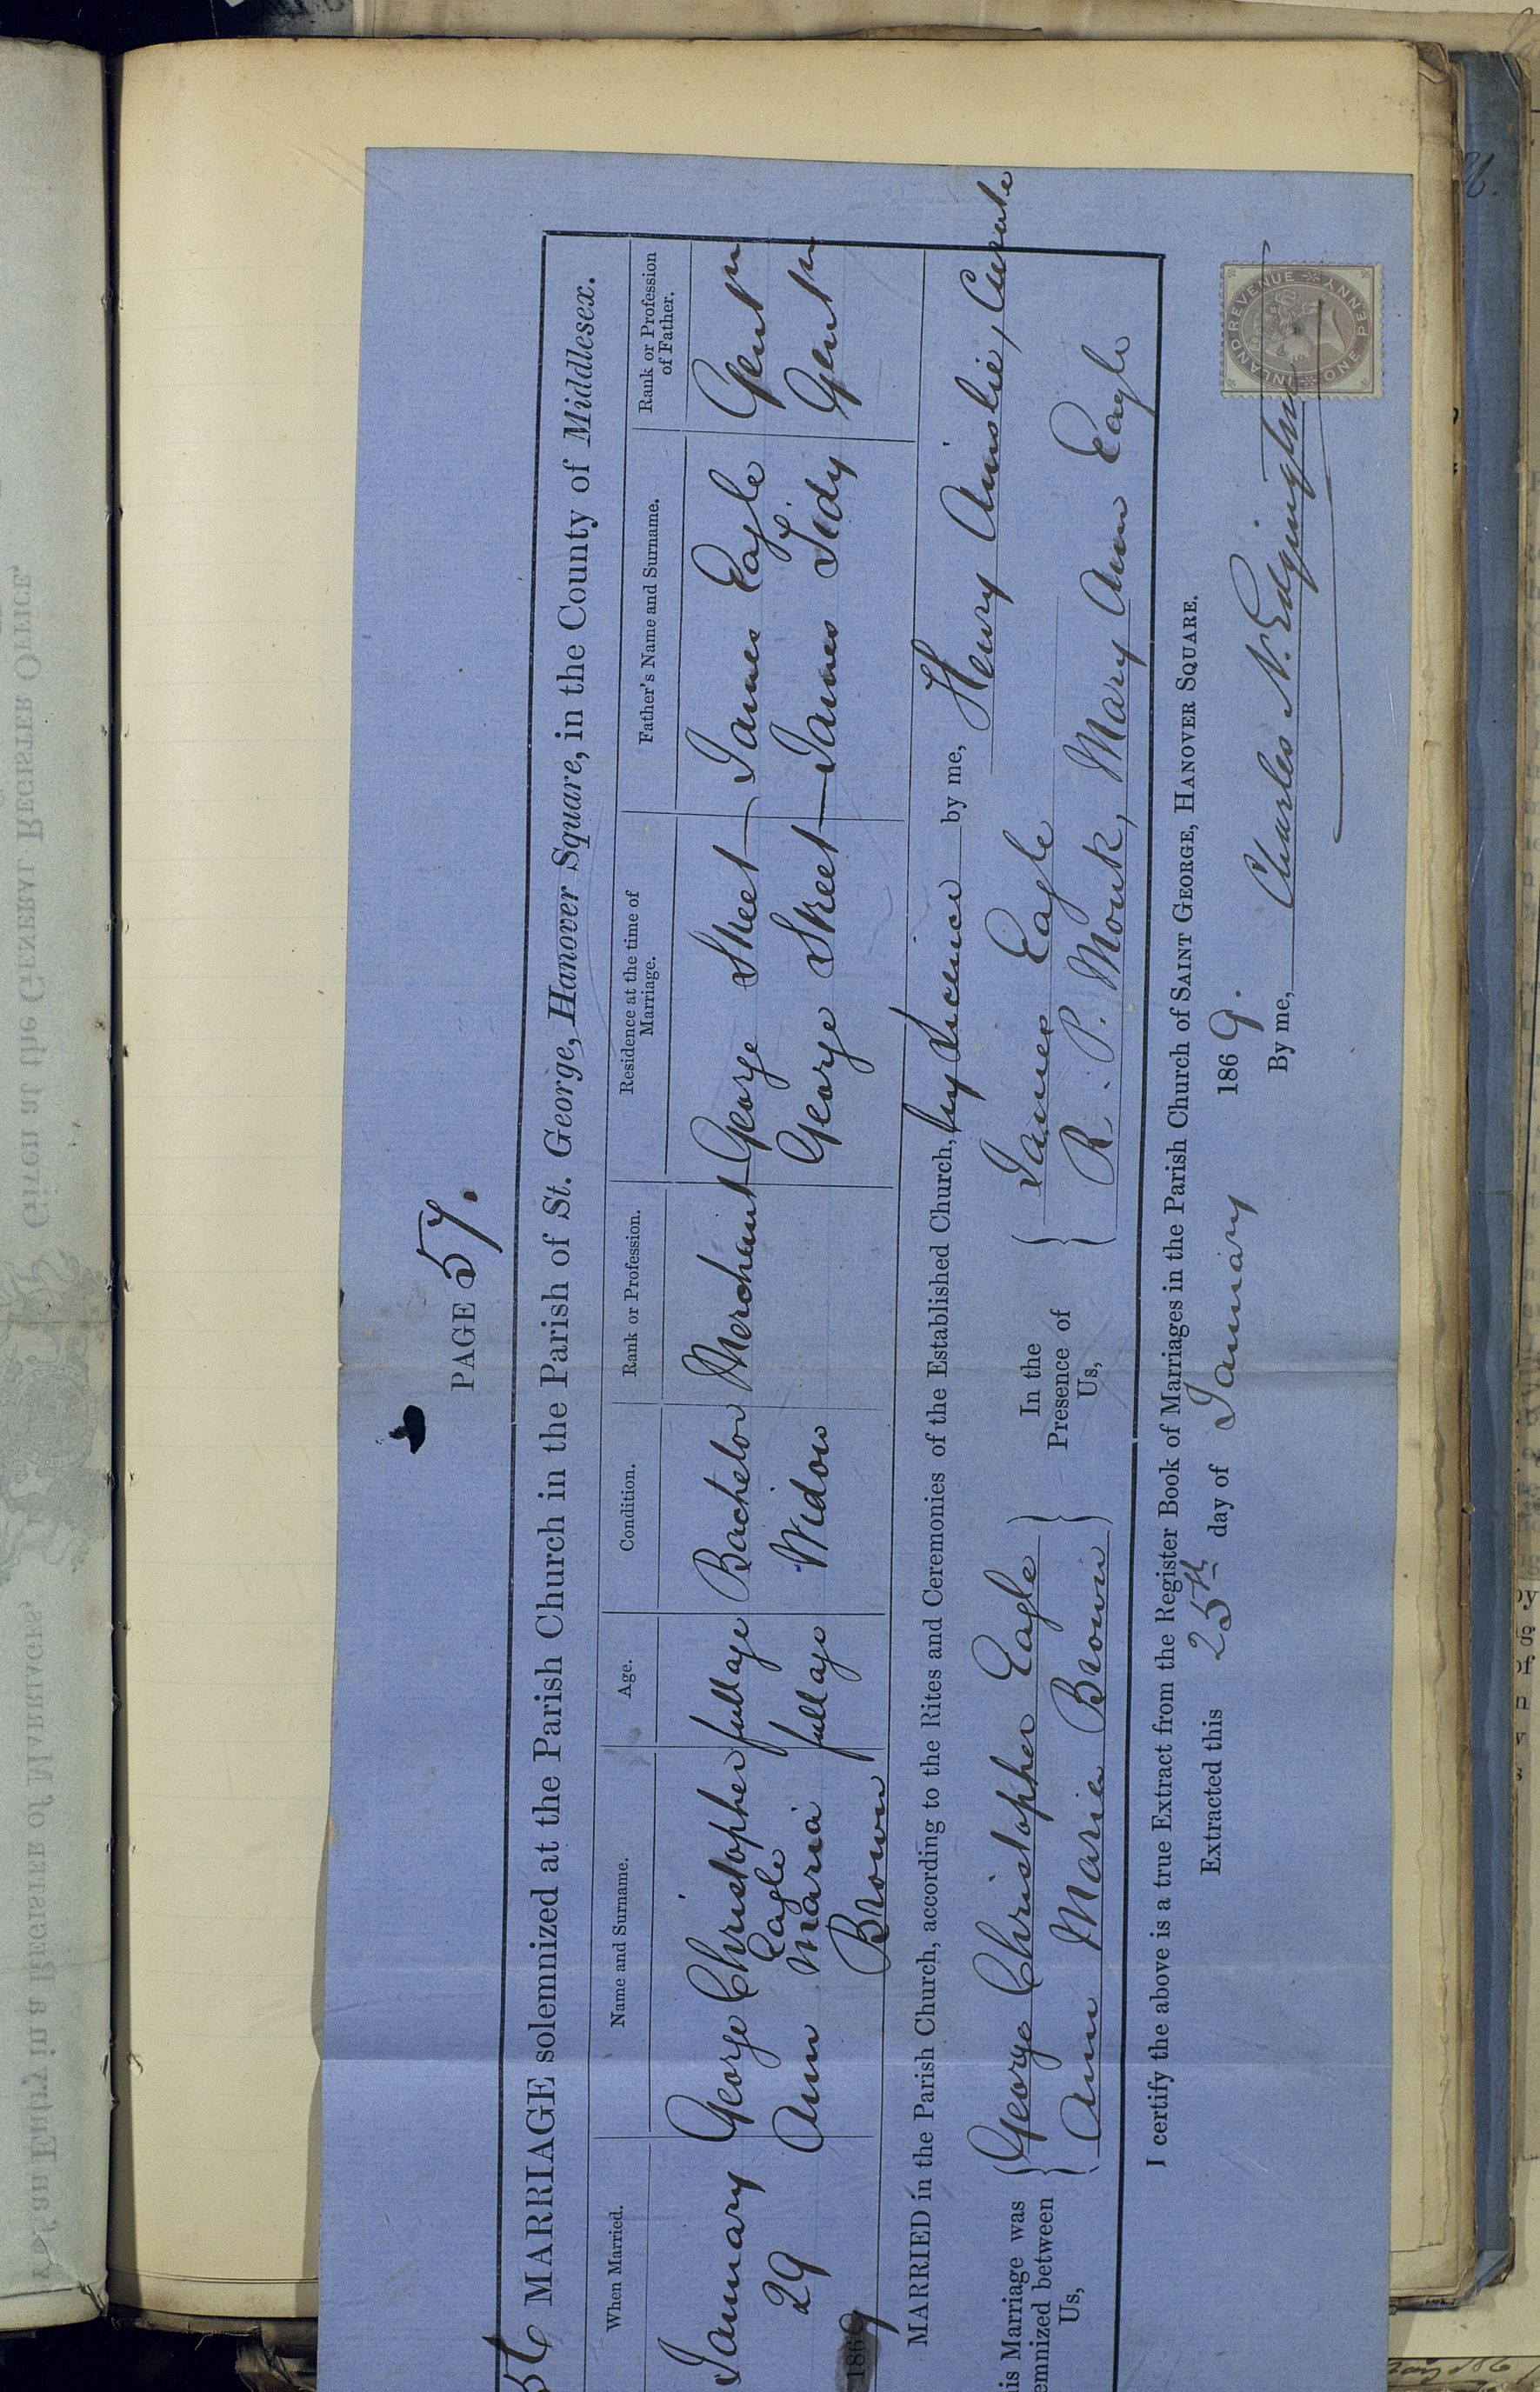 PAGE 57.
MARRIAGE solemnized at the Parish Church in the Parish of St. George, Hanover Square, in the County of Middlesex.
When Married. Name and Surname. Age. Condition. Rank or Profession. Residence at the time of Marriage. Father's Name and Surname. Rank or Profession of Father.
January George Christopher full age Bachelor Merchant George Street James Eagle Gentn
Eagle
29 Ann Maria full age Widow George Street James Tidy Gentn
1869 Brown
MARRIED in the Parish Church, according to the Rites and Ceremonies of the Established Church, by Licence by me, Henry Ainslie, Curate
his Marriage was
emnized between
Us,
George Christopher Eagle
Ann Maria Brown
In the
Presence of
Us,
James Eagle
R. P. Monk, Mary Ann Eagle
I certify the above is a true Extract from the Register Book of Marriages in the Parish Church of SAINT GEORGE, HANOVER SQUARE.
Extracted this 25th day of January 1869.
By me, Charles N. Edgington
INLAND REVENUE ONE PENNY
of an Entry in a REGISTER of MARRIAGES,
Given at the GENERAL REGISTER OFFICE,